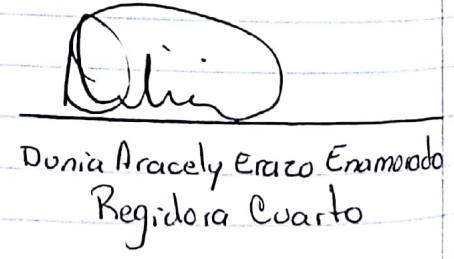 Dunia Aracely Erazo Enamorado
Regidora Cuarto